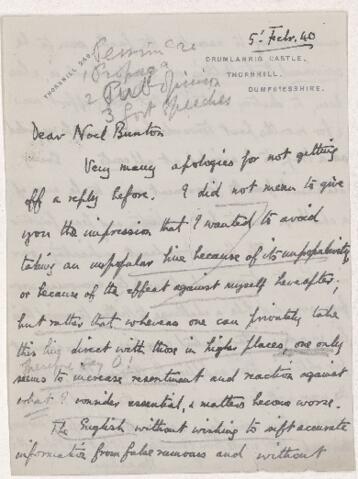 5. Febr. 40
THORNHILL 249.
DRUMLANRIG CASTLE,
THORNHILL,
DUMFRIESSHIRE.
1 Propaga
2 Pub opinion
3 Govt speeches
Dear Noel Buxton
Very many apologies for not getting
off a reply before. I did not mean to give
you the impression that I wanted to avoid
taking an unpopular line because of its unpopularity,
or because of the effect against myself hereafter,
but rather that whereas one can privately take
this line direct with those in high places, one only
seems to increase resentment and reaction against
what I consider essential, & matters become worse.
The English without wishing to sift accurate
information from false rumours and without